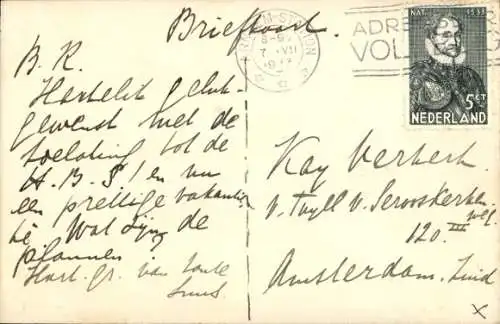 Briefkaart
B. K.
Hartelijk geluk-
gewenst met de
toelating tot de
H.B.S! en nu
een prettige vakantie,
Wat zijn de
plannen?
Hart. gr. van tante
Kay Verkerk
v. Tuyll v. Serooskerken
weg.
120 III
Amsterdam. Zuid
STATION
VII
ADRES
VOL
5 CT
NEDERLAND
x